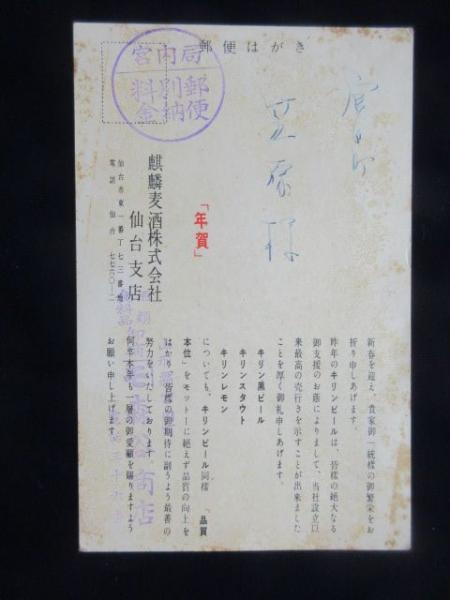 郵便はがき
宮内局
料金別納郵便
様
「年賀」
麒麟麦酒株式会社
仙台支店
仙台市東一番丁七三番地
電話 仙台
新春を迎え、貴家御一統様の御繁栄をお
祈り申しあげます。
昨年のキリンビールは、皆様の絶大なる
御支援のお蔭によりまして、当社設立以
来最高の売行きを示すことが出来ました
ことを厚く御礼申しあげます。
キリン黒ビール
キリンスタウト
キリンレモン
についても、キリンビール同様 「品質
本位」をモットーに絶えず品質の向上を
はかり、皆様の御期待に副うよう最善の
努力をいたしております
何卒本年も一層の御愛顧を賜りますよう
お願い申し上げます。
商店